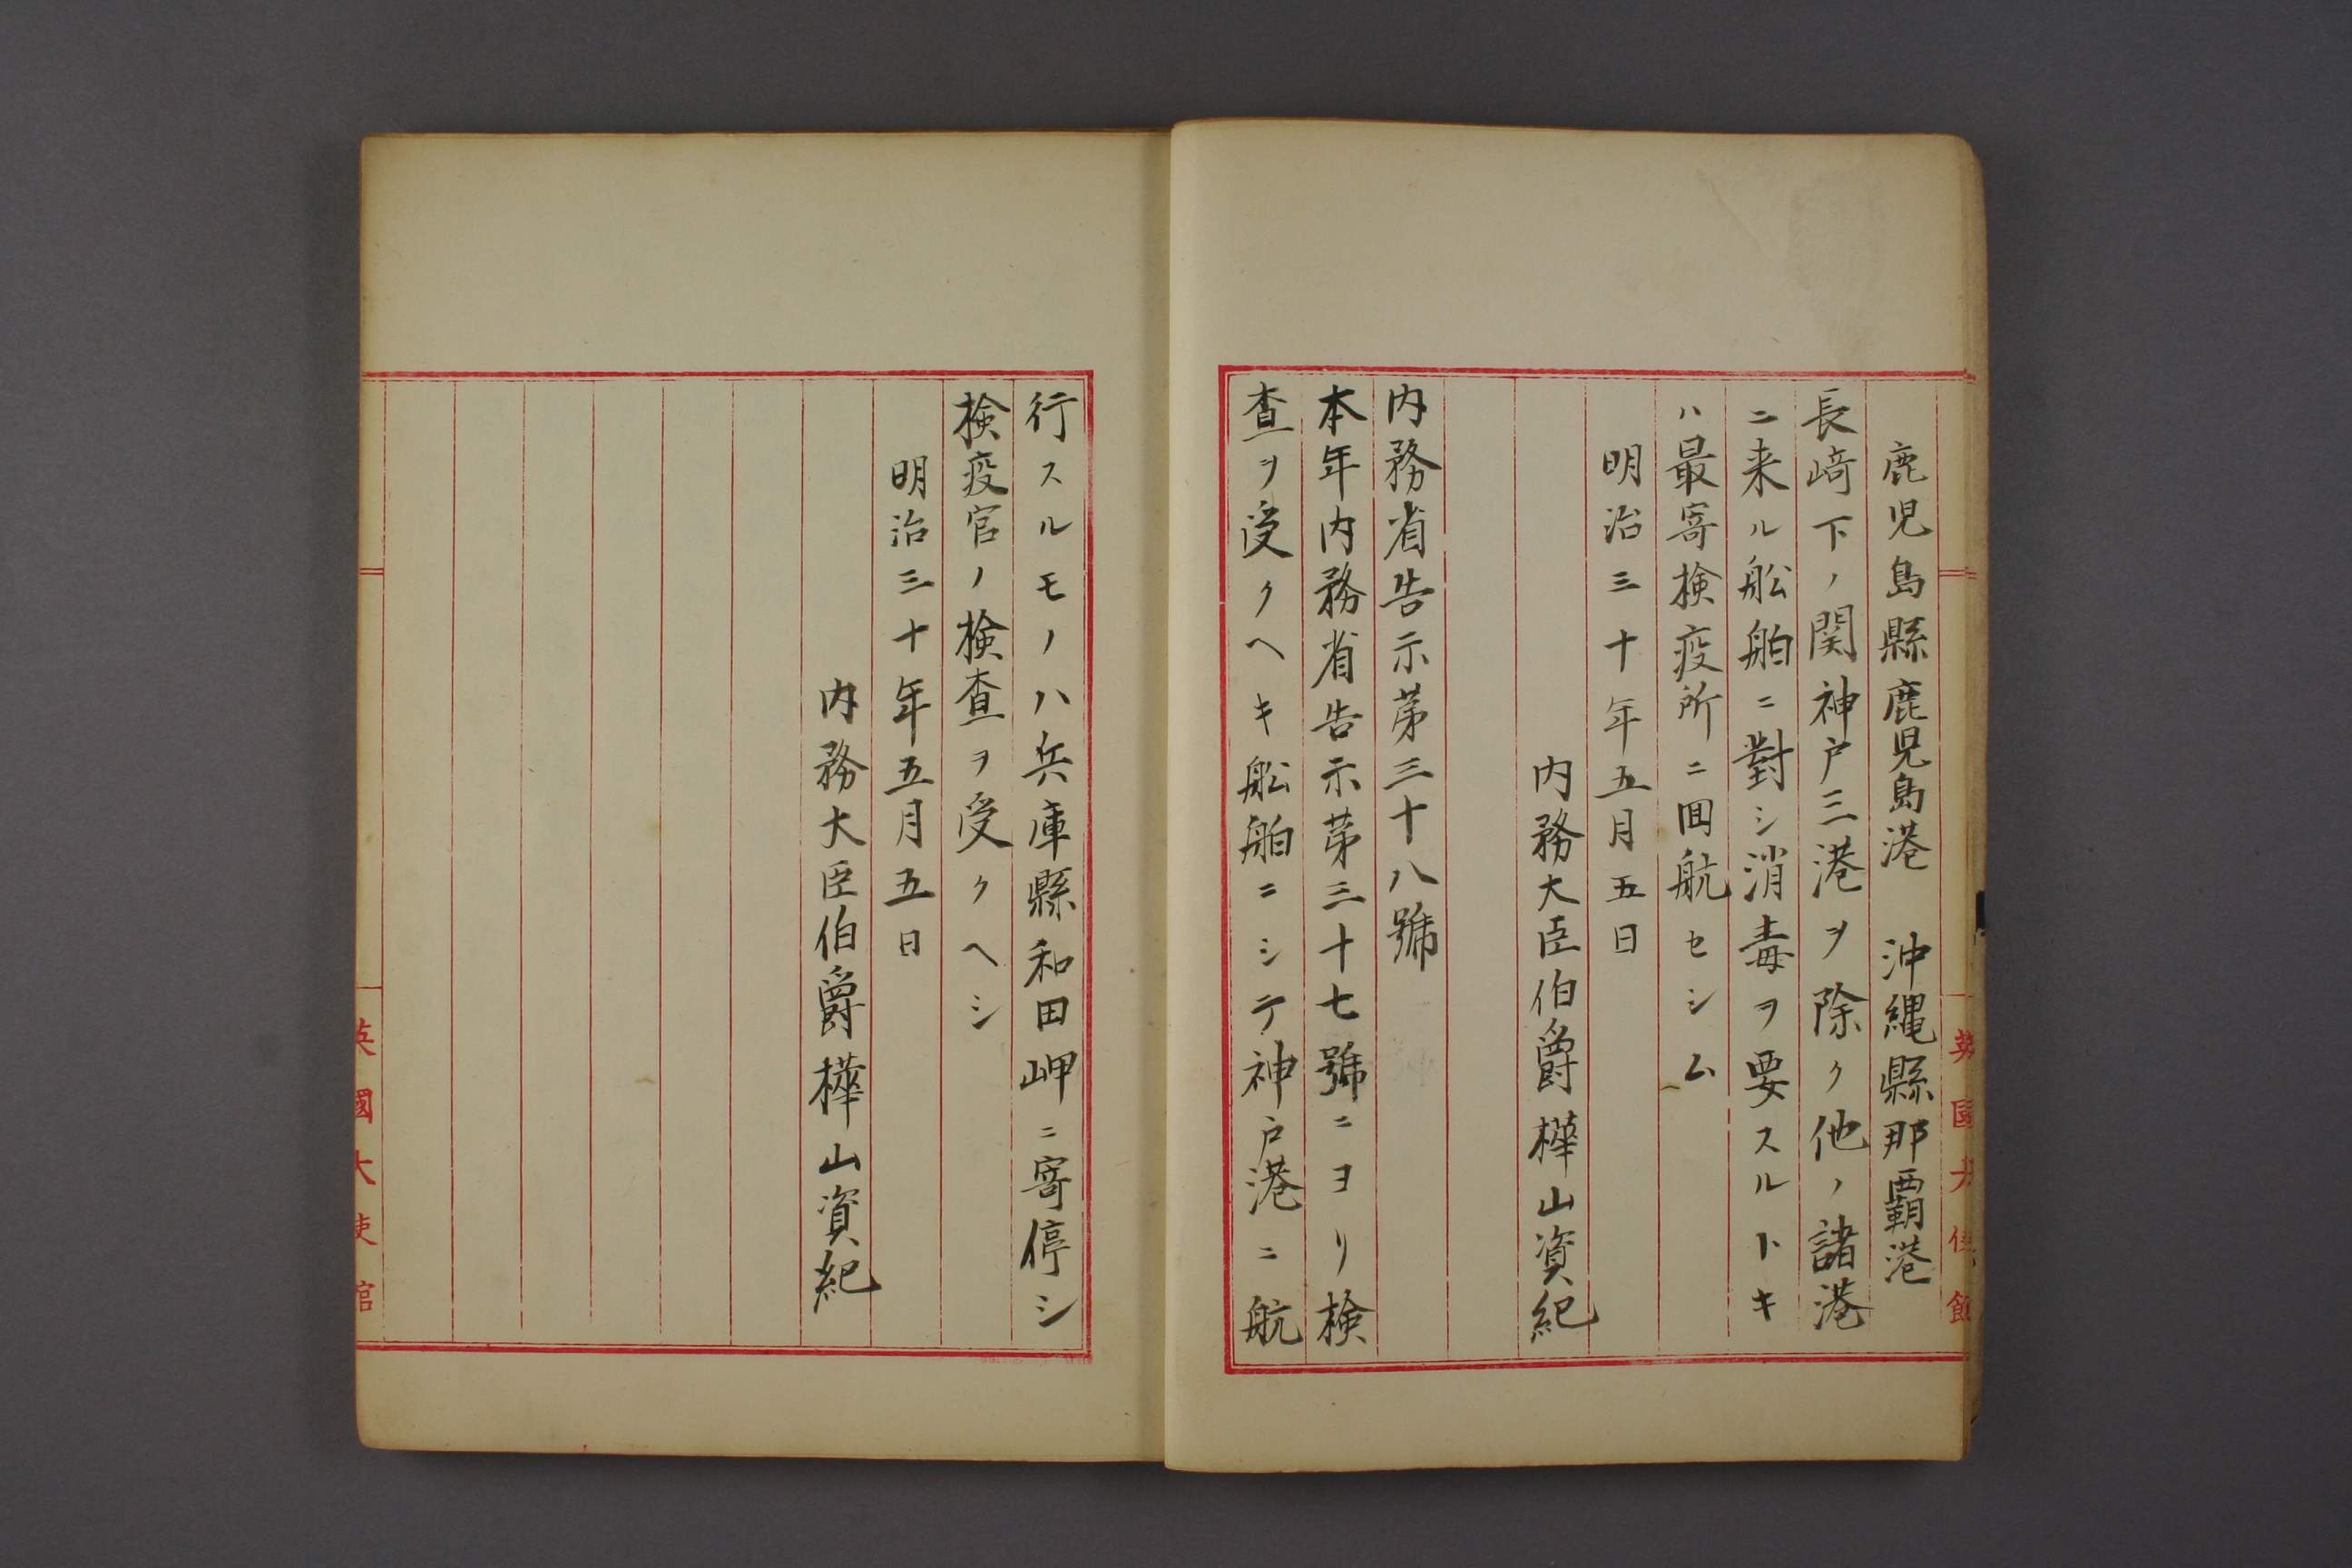 鹿児島縣鹿児島港　沖縄縣那覇港
長崎下ノ関神戸三港ヲ除ク他ノ諸港
ニ来ル舩舶ニ對シ消毒ヲ要スルトキ
ハ最寄検疫所ニ囬航セシム
明治三十年五月五日
内務大臣伯爵樺山資紀
内務省告示第三十八號
本年内務省告示第三十七號ニヨリ検
査ヲ受クヘキ舩舶ニシテ神戸港ニ航
英國大使館
行スルモノハ兵庫縣和田岬ニ寄停シ
検疫官ノ検査ヲ受クヘシ
明治三十年五月五日
内務大臣伯爵樺山資紀
英國大使館